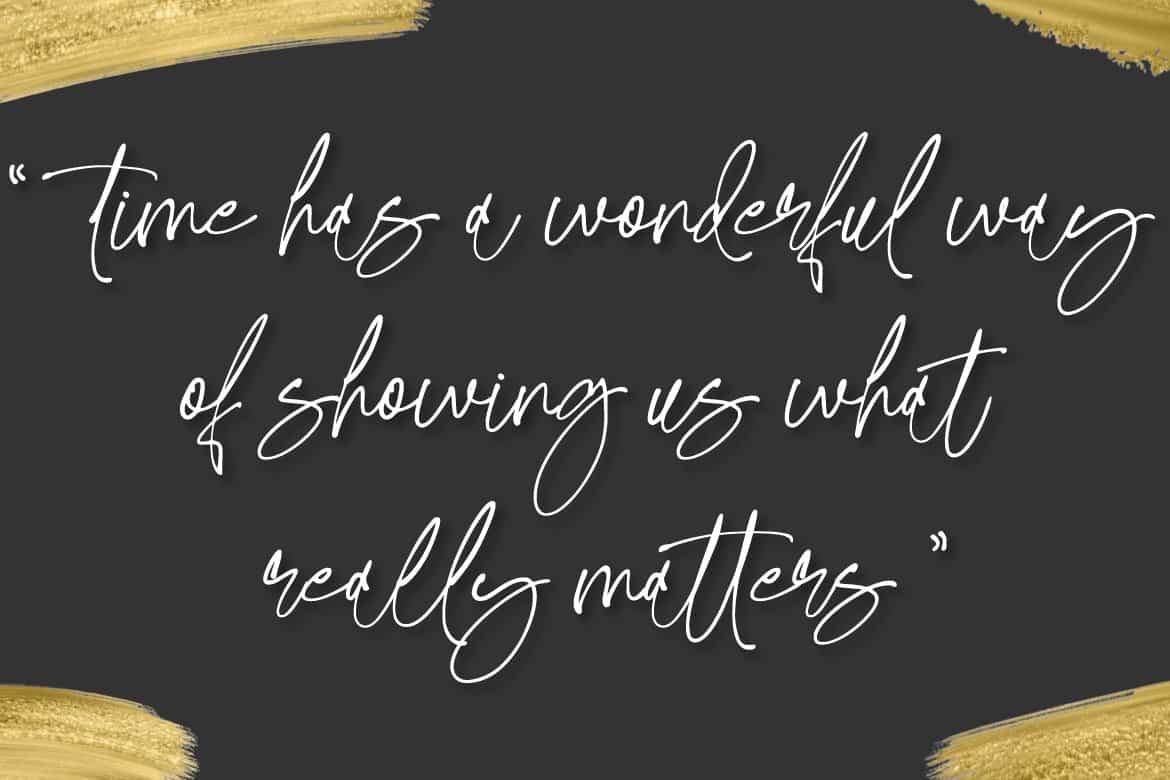 “ time has a wonderful way
of showing us what
really matters ”